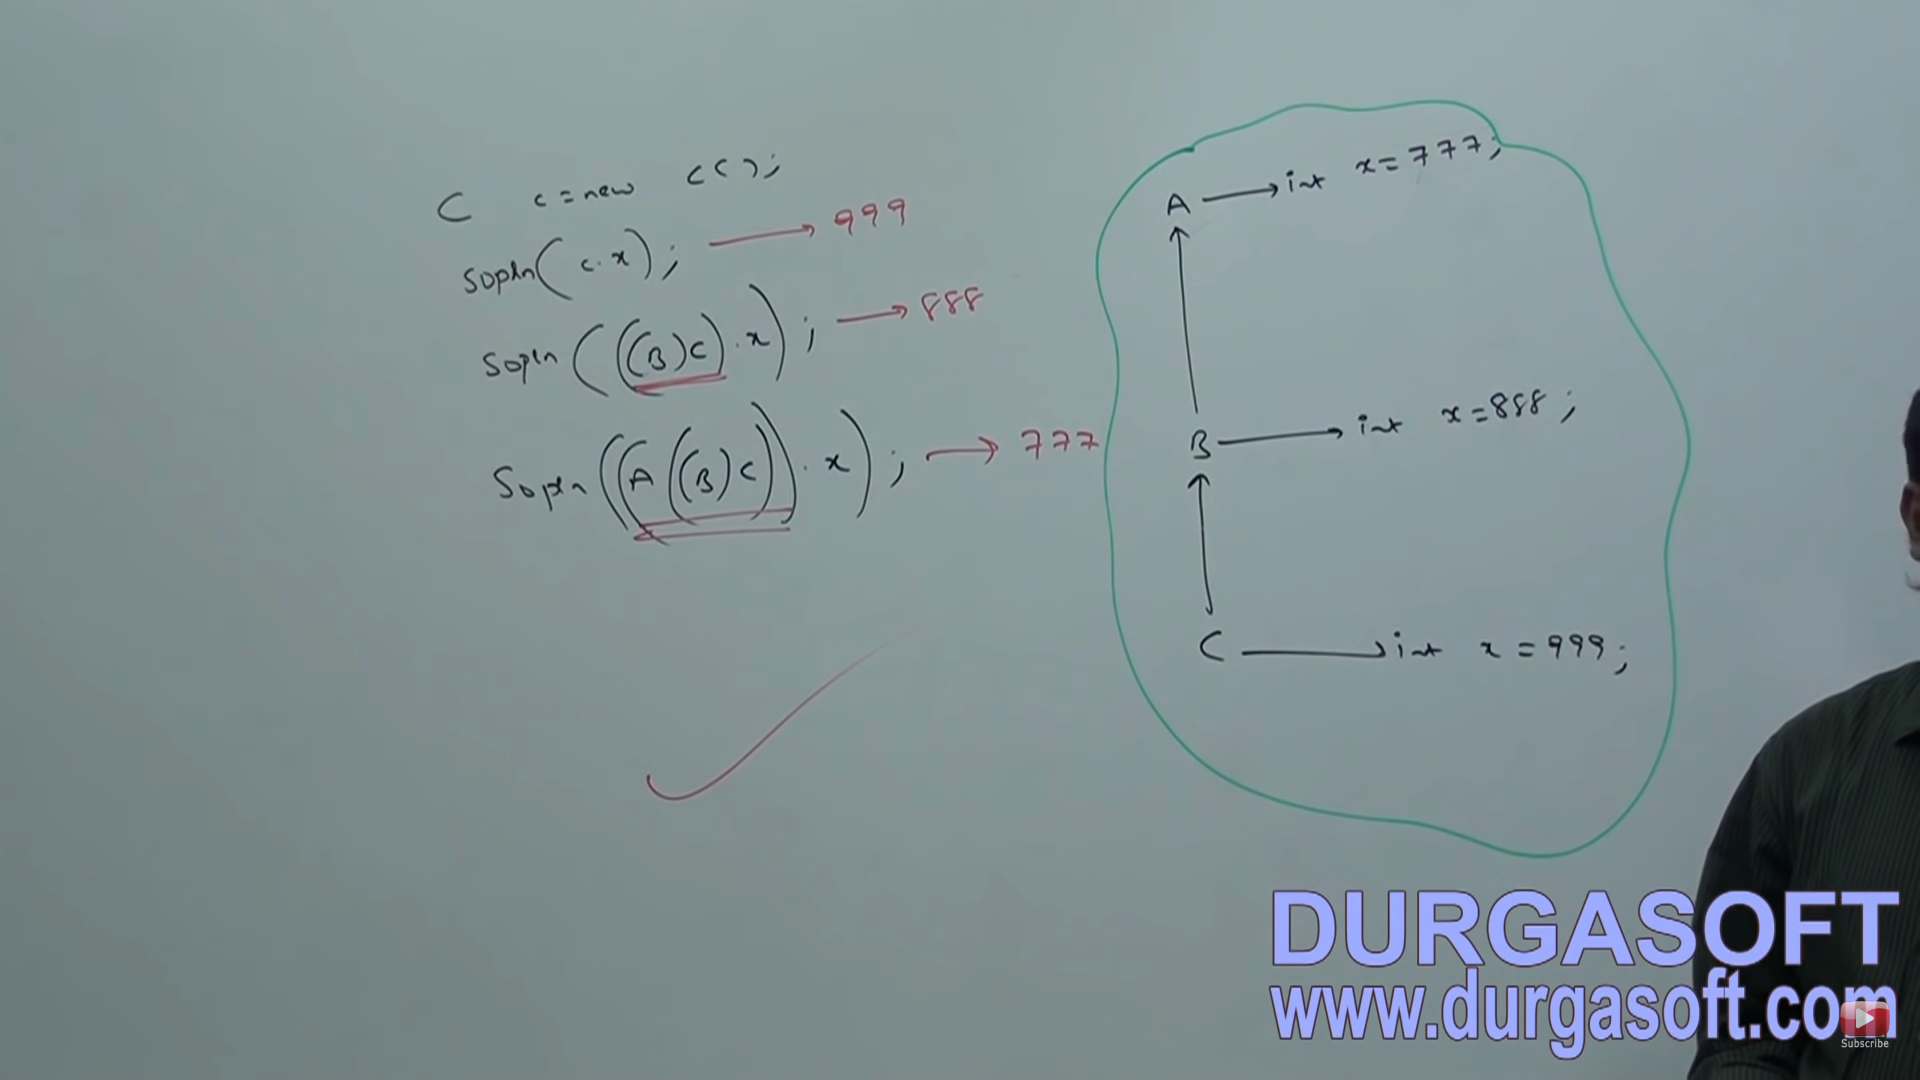 C c = new C();
Sopln( c.x ); → 999
Sopln(((B)C).x); → 888
Sopln((A((B)C)).x); → 777
A → int x = 777;
B → int x = 888;
C → int x = 999;
DURGASOFT
www.durgasoft.com
Subscribe